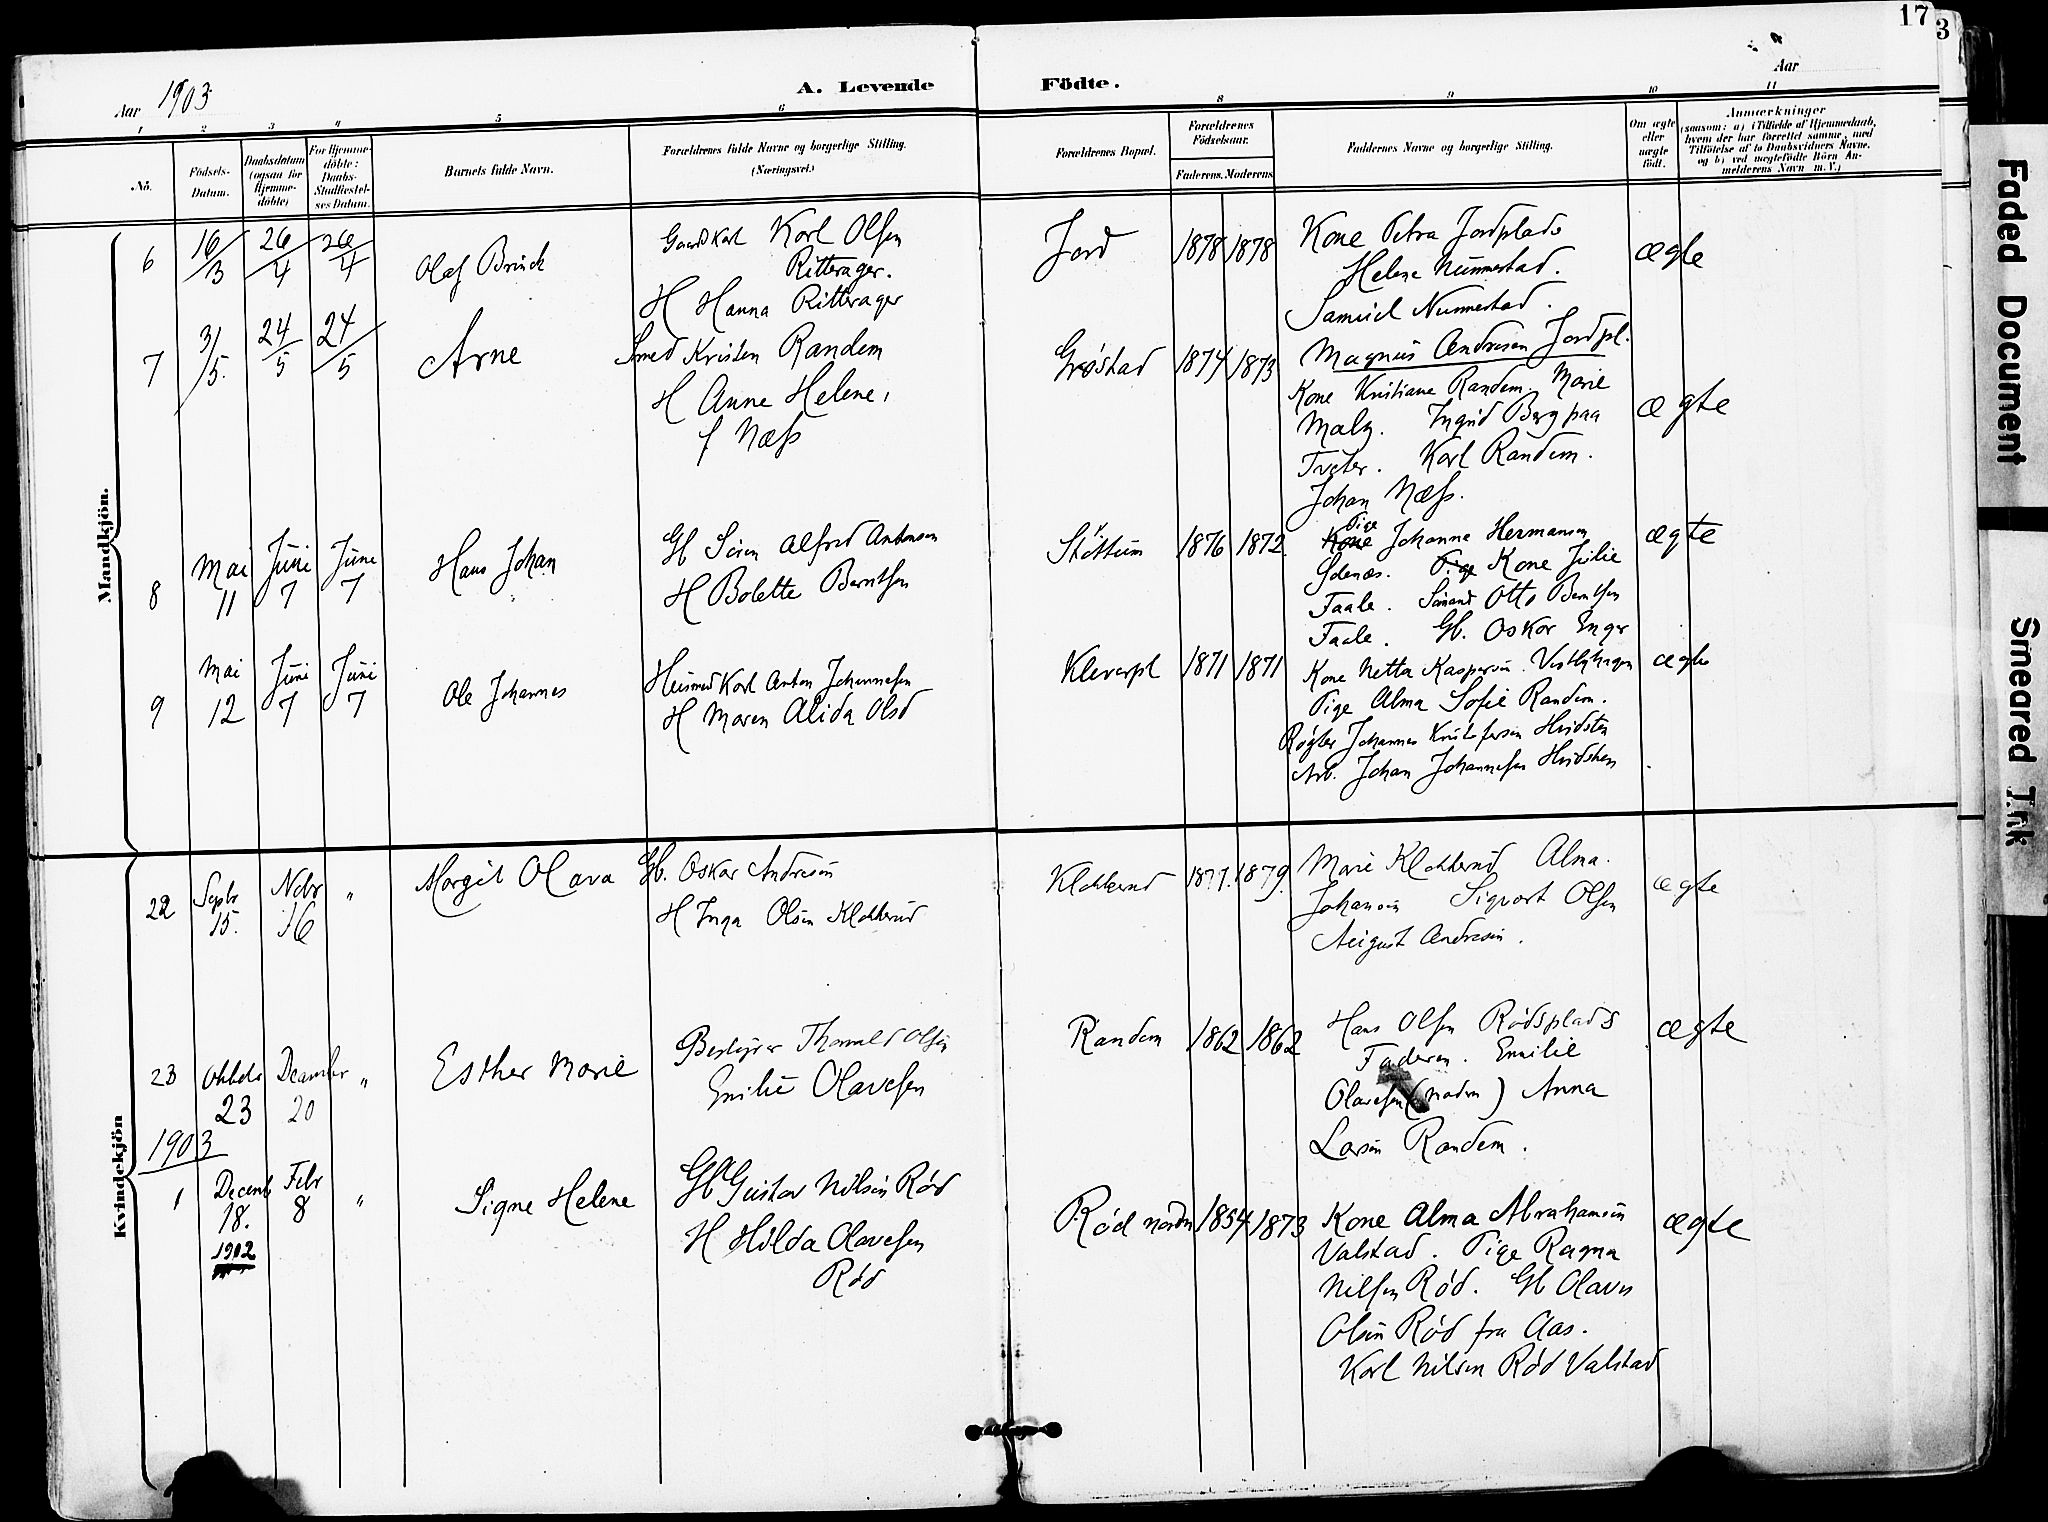 17
3
Aar 1903
A. Levende Födte.
Aar
1 2 3 4 5 6 8 9 10 11
No.
Födsels-Datum.
Daabsdatum (ogsaa for Hjemme-döbte)
For Hjemme-döbte: Daabs-Stadfæstel-ses Datum.
Barnets fulde Navn.
Forældrenes fulde Navne og borgerlige Stilling.
(Næringsvei.)
Forældrenes Bopæl.
Forældrenes Födselsaar.
Faderens. Moderens
Faddernes Navne og borgerlige Stilling.
Om ægte eller uægte födt.
Anmærkninger
(saasom: a) i Tilfælde af Hjemmedaab,
hvem der har forrettet samme, med
Tilföielse af to Daabsvidners Navne.
og b) ved uægtefödte Börn An-
melderens Navn m. V.)
Mandkjön.
6 16/3 26/4 26/4 Olaf Brinck
Gaardkarl Karl Olsen
Ritterager.
H Hanna Ritterager
Jord 1878 1878
Kone Petra Jordplads
Helene Nummestad.
Samuel Nummestad.
ægte
7 31/5. 24/5 24/5 Arne
Smed Kristen Randem
H Anne Helene,
f Næss
Grøstad 1874 1873
Magnus Andresen Jordpl.
Kone Kristiane Randem. Marie
Maly. Ingrid Berg paa
Tveter. Karl Randem.
Johan Næss.
ægte
8 Mai 11 Juni 7 Juni 7 Hans Johan
Gb Sören Alfred Antonsen
H Bolette Berntsen
Støttum 1876 1872.
Pige
Kone Johanne Hermansen
Pige Kone Julie
Faale. Sömand Otto Berntsen
Faale. Gb. Oskar Enger
ægte
9 Mai 12 Juni 7 Juni 7 Ole Johannes
Husmand Karl Anton Johannesen
H Maren Alida Olsd
Kleverpl 1871 1871
Kone Netta Kaspersen Vestbyhagen
Pige Alma Sofie Randem.
Røgter Johannes Kristofersen Hvidsten
Arb. Johan Johannesen Hvidsten
ægte
Kvindekjön
22 Septr 15. Nvbr 16 " Margit Olava
Gb. Oskar Andresen
H Inga Olsen Klokkerud
Klokkerud 1877. 1879.
Marie Klokkerud Alma.
Johansen Sigvart Olsen
August Andresen.
ægte
23 Oktobr 23 December 20 " Esther Marie
Bestyrer Thorvald Olsen
Emilie Olavesen
Randem 1862 1862
Hans Olsen Rødsplads
Faderen. Emilie
Olavesen (modern) Anna
Larsen Randem.
ægte
1903
1 Decemb 18. 1902 Febr 8 " Signe Helene
Gb Gustav Nilsen Rød
H Hilda Olavesen
Rød
Rød nordr 1854. 1873
Kone Alma Abrahamsen
Valstad. Pige Ragna
Nilsen Rød. Gb Olavus
Olsen Rød fra Aas.
Karl Nilsen Rød Valstad
ægte
Faded Document
Smeared Ink